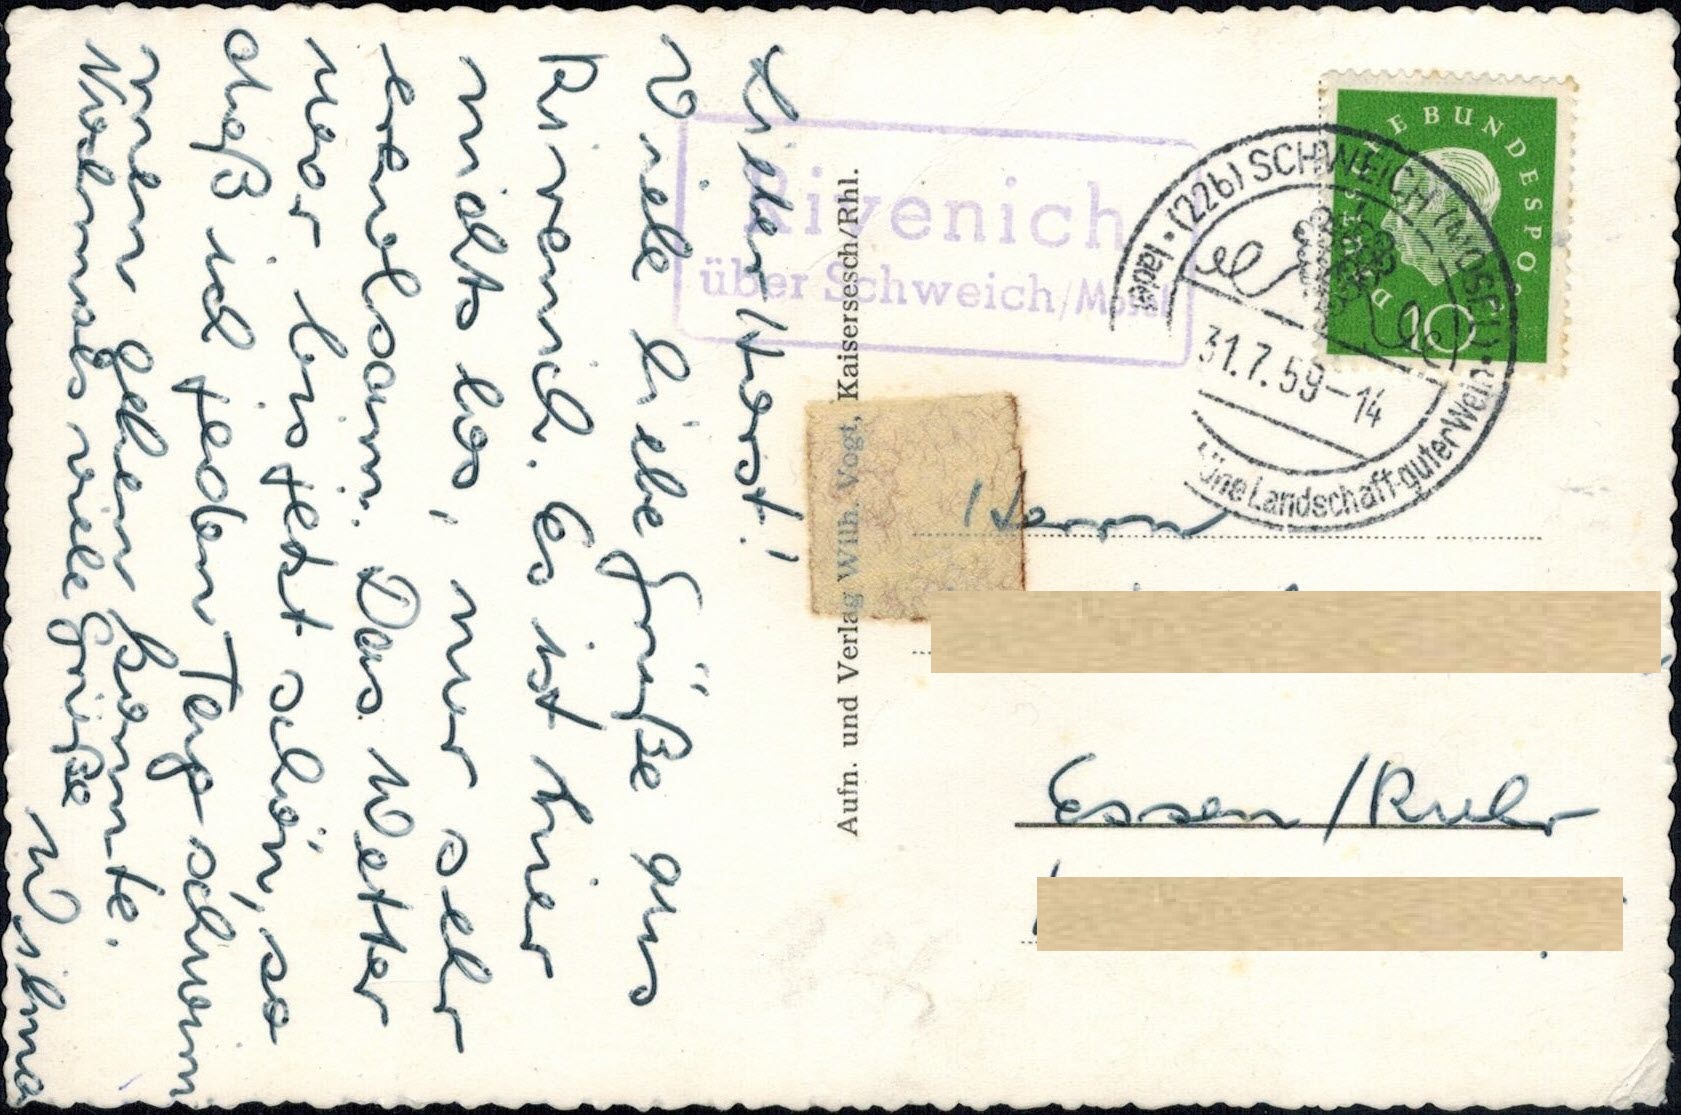 Lieber Horst!
Viele liebe Grüße aus
Rivenich. Es ist hier
nichts los, nur sehr
erholsam. Das Wetter
war bis jetzt schön, so
daß ich jeden Tag schwim
men gehen konnte.
Nochmals viele Grüße
Wilma
Rivenich
über Schweich/Mosel
Aufn. und Verlag Wilh. Vogt, Kaisersesch/Rhl.
(22b) SCHWEICH (MOSEL)
31.7.59-14
Landschaft-guter Wein
E BUNDESPOS
10
Herrn
Essen/Ruhr